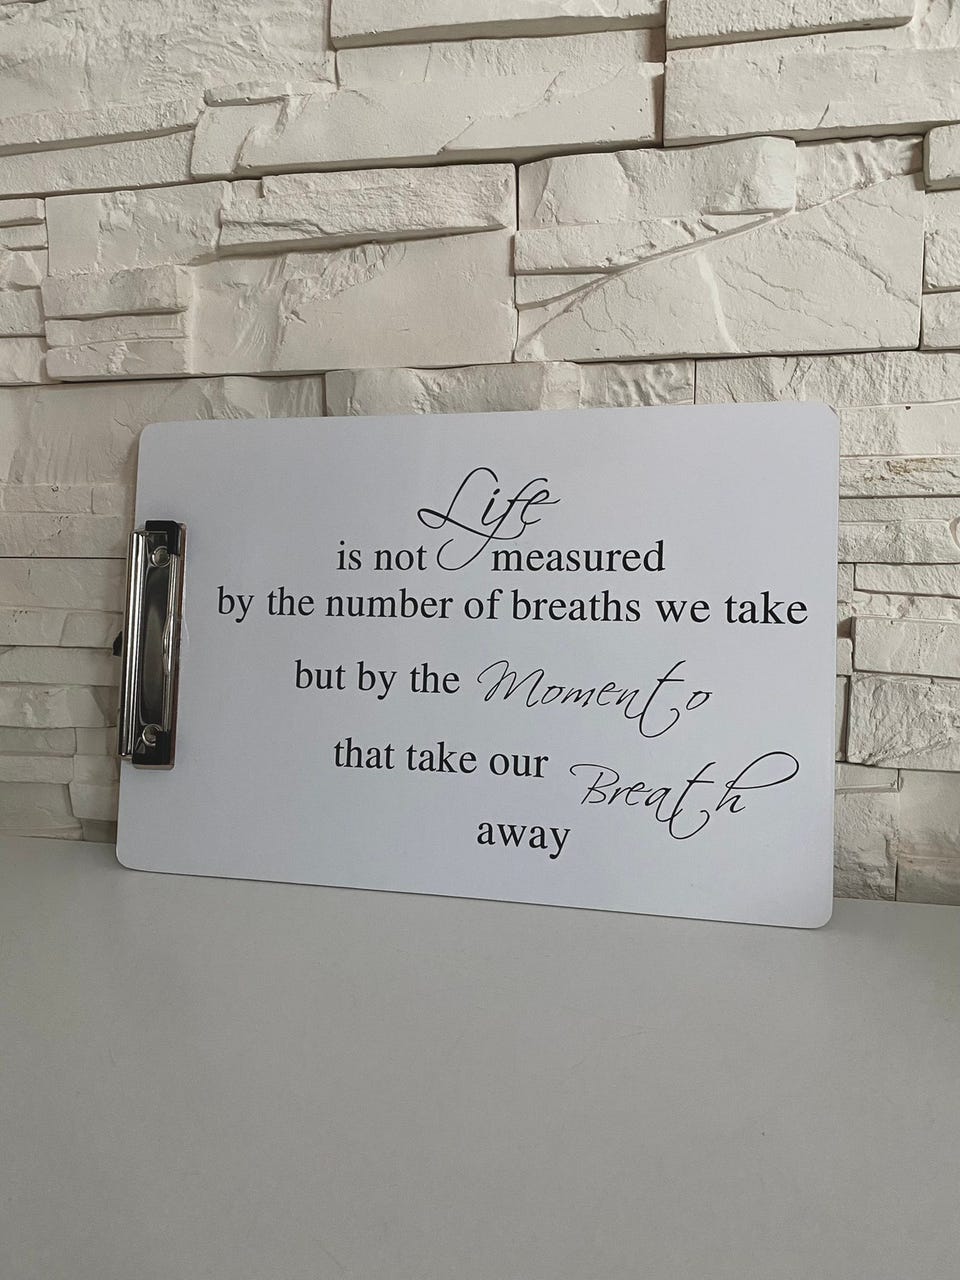 Life
is not measured
by the number of breaths we take
but by the Momento
that take our Breath
away